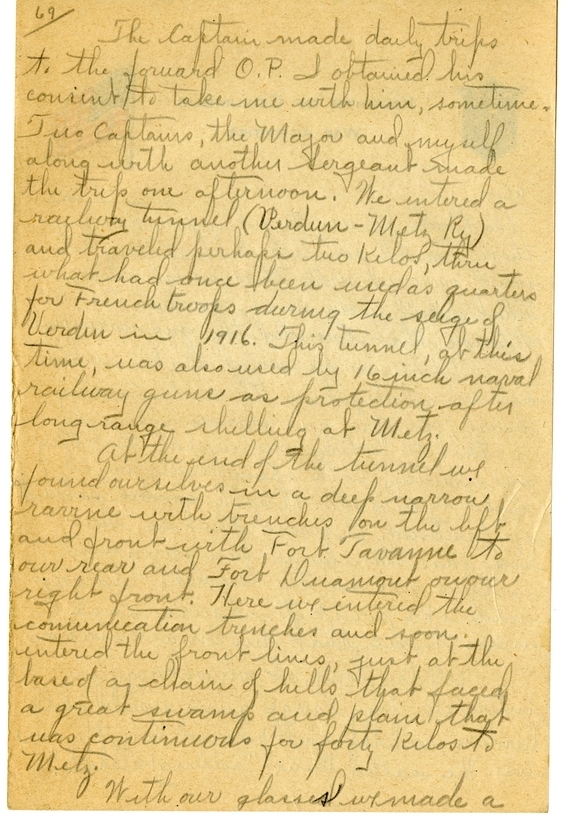 69
The Captain made daily trips
to the forward O.P. I obtained his
consent to take me with him, sometime.
Two Captains, the Major and myself
along with another Sergeant made
the trip one afternoon. We entered a
railway tunnel (Verdun-Metz Ry)
and traveled perhaps two Kilos, thru
what had once been used as quarters
for French troops during the seige of
Verdun in 1916. This tunnel, at this
time, was also used by 16 inch naval
railway guns as protection after
long range shelling at Metz.
At the end of the tunnel we
found ourselves in a deep narrow
ravine with trenches on the left
and front with Fort Tavanne to
our rear and Fort Duamont on our
right front. Here we entered the
comunication trenches and soon
entered the front lines, just at the
base of a chain of hills that faced
a great swamp and plain that
was continuous for forty Kilos to
Metz.
With our glasses we made a